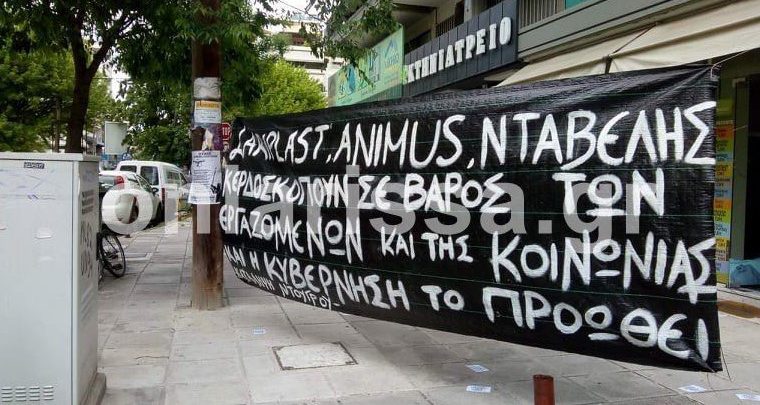 ΚΤΗΝΙΑΤΡΕΙΟ
ANIMUS, ΝΤΑΒΕΛΗΣ
ΚΕΡΔΟΣΚΟΠΟΥΝ ΣΕ ΒΑΡΟΣ ΤΩΝ
ΕΡΓΑΖΟΜΕΝΩΝ ΚΑΙ ΤΗΣ ΚΟΙΝΩΝΙΑΣ
ΚΑΙ Η ΚΥΒΕΡΝΗΣΗ ΤΟ ΠΡΟΩΘΕΙ
ΝΤΟΥΓΡΟΥ
onlarissa.gr